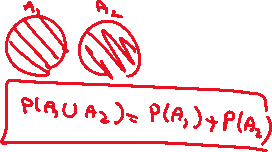 A₁ A₂
P(A₁ ∪ A₂) = P(A₁) + P(A₂)